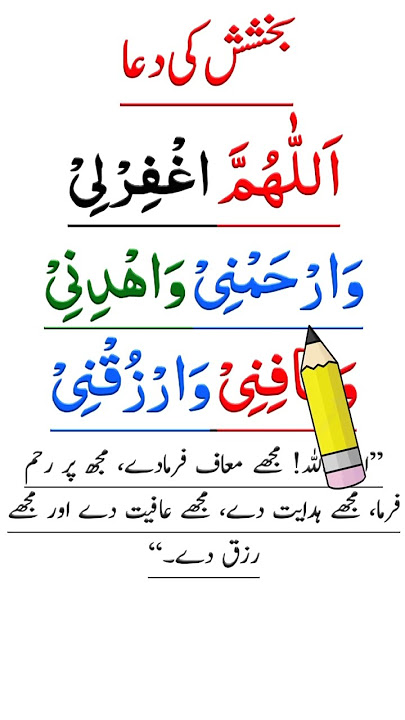 بخشش کی دعا
اَللّٰهُمَّ اغْفِرْلِیْ
وَارْحَمْنِیْ وَاهْدِنِیْ
وَارْزُقْنِیْ
اللہ! مجھے معاف فرمادے، مجھ پر رحم
فرما، مجھے ہدایت دے، مجھے عافیت دے اور مجھے
رزق دے۔“